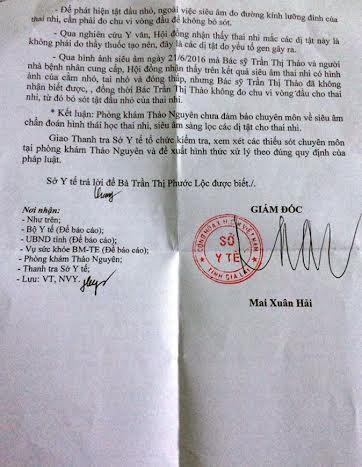 - Để phát hiện tật đầu nhỏ, ngoài việc siêu âm đo đường kính lưỡng đỉnh của
thai nhi, cần phải đo chu vi vòng đầu để không bỏ sót.
- Qua nghiên cứu Y văn, Hội đồng nhận thấy thai nhi mắc các dị tật này là
không phải do thầy thuốc tạo nên, đây là các dị tật do yếu tố gen gây ra.
* Qua hình ảnh siêu âm ngày 21/6/2016 mà Bác sỹ Trần Thị Thảo và người
nhà bệnh nhân cung cấp, Hội đồng nhận thấy trên kết quả siêu âm thai nhi có hình
ảnh của cằm nhỏ, tai nhỏ và đóng thấp, nhưng Bác sỹ Trần Thị Thảo đã không
nhận biết được, , đồng thời Bác sỹ Trần Thị Thảo không đo chu vi vòng đầu cho thai
nhi, từ đó bỏ sót tật đầu nhỏ của thai nhi.
* Kết luận: Phòng khám Thảo Nguyên chưa đảm bảo chuyên môn về siêu âm
chẩn đoán hình thái học thai nhi, siêu âm sàng lọc các dị tật cho thai nhi.
Giao Thanh tra Sở Y tế tổ chức kiểm tra, xem xét các thiếu sót chuyên môn
tại phòng khám Thảo Nguyên và đề xuất hình thức xử lý theo đúng quy định của
pháp luật.
Sở Y tế trả lời để Bà Trần Thị Phước Lộc được biết./.
Nơi nhận:
- Như trên;
- Bộ Y tế (Để báo cáo);
- UBND tỉnh (Để báo cáo);
- Vụ sức khỏe BM-TE (Để báo cáo);
- Phòng khám Thảo Nguyên;
- Thanh tra Sở Y tế;
- Lưu: VT, NVY.
GIÁM ĐỐC
SỞ
Y TẾ
TỈNH GIA LAI
Mai Xuân Hải